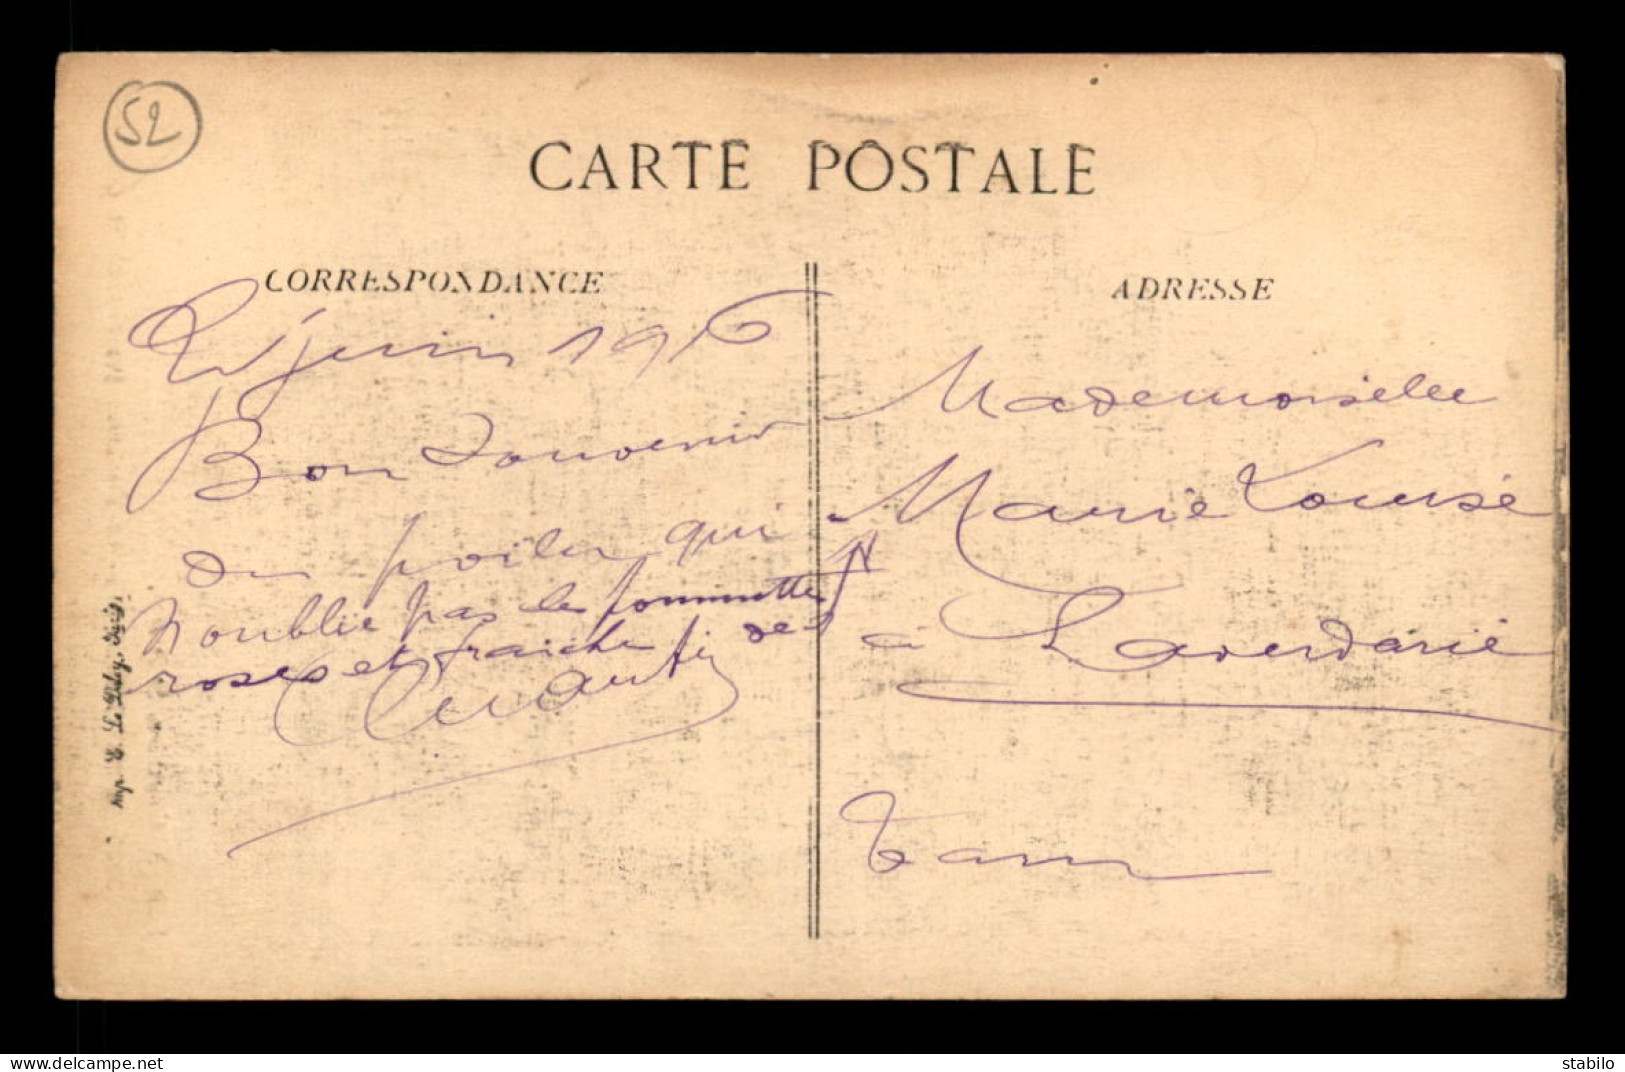 52
CARTE POSTALE
CORRESPONDANCE
juin 1916
Bon Souvenir
du poilu qui
N oublie pas le
roses et fraiche des
ADRESSE
Mademoiselle
Marie Louise
à Laverdarié
Tarn
Imp. E. Le Deley, Paris.
www.delcampe.net
stabilo